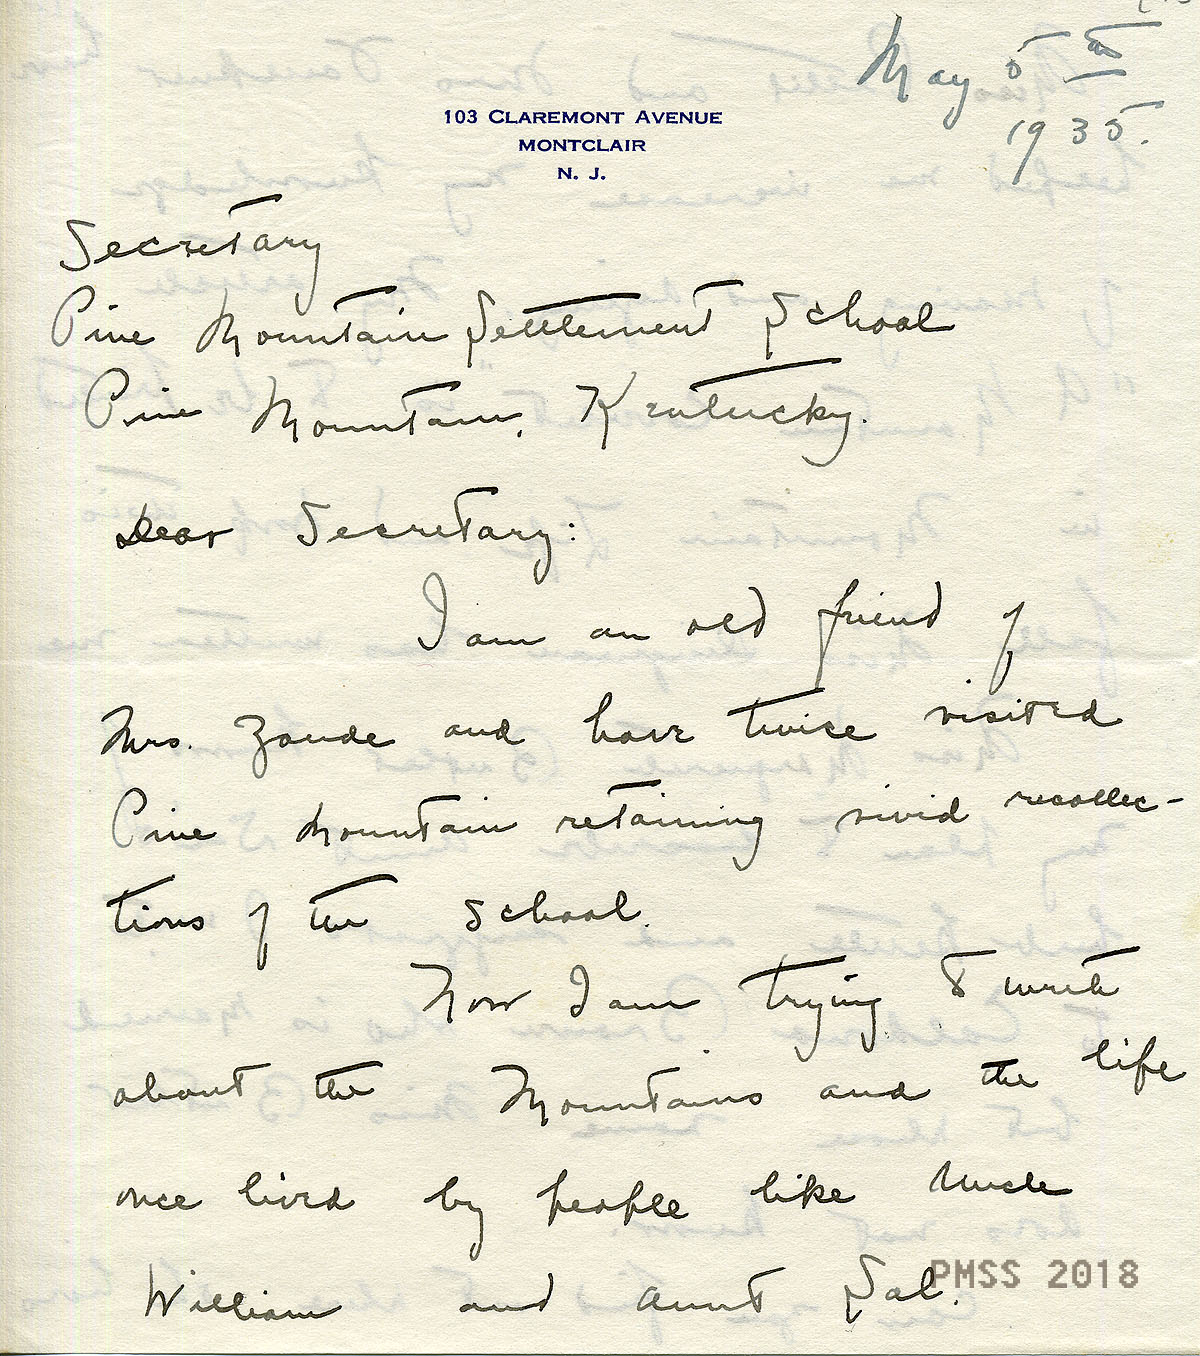 May 5th
1935.
103 CLAREMONT AVENUE
MONTCLAIR
N. J.
Secretary
Pine Mountain Settlement School
Pine Mountain, Kentucky.
Dear Secretary:
I am an old friend of
Mrs. Zande and have twice visited
Pine Mountain retaining vivid recollec-
tions of the School.
Now I am trying to write
about the Mountains and the life
once lived by people like Uncle
William and Aunt Sal.
PMSS 2018